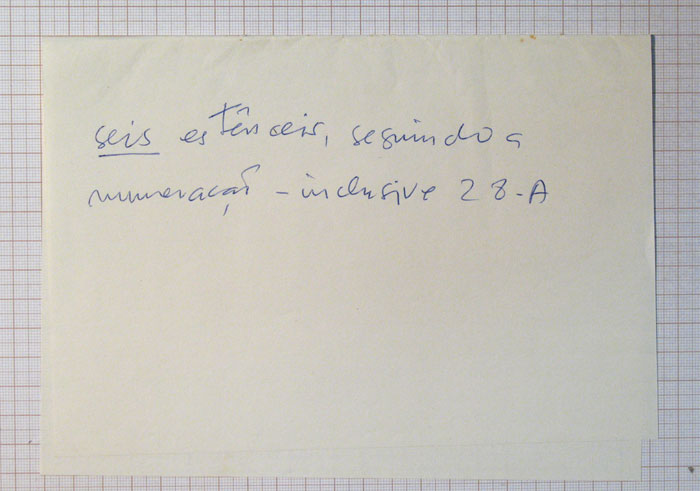 seis estênceis, seguindo a
numeração - inclusive 28-A